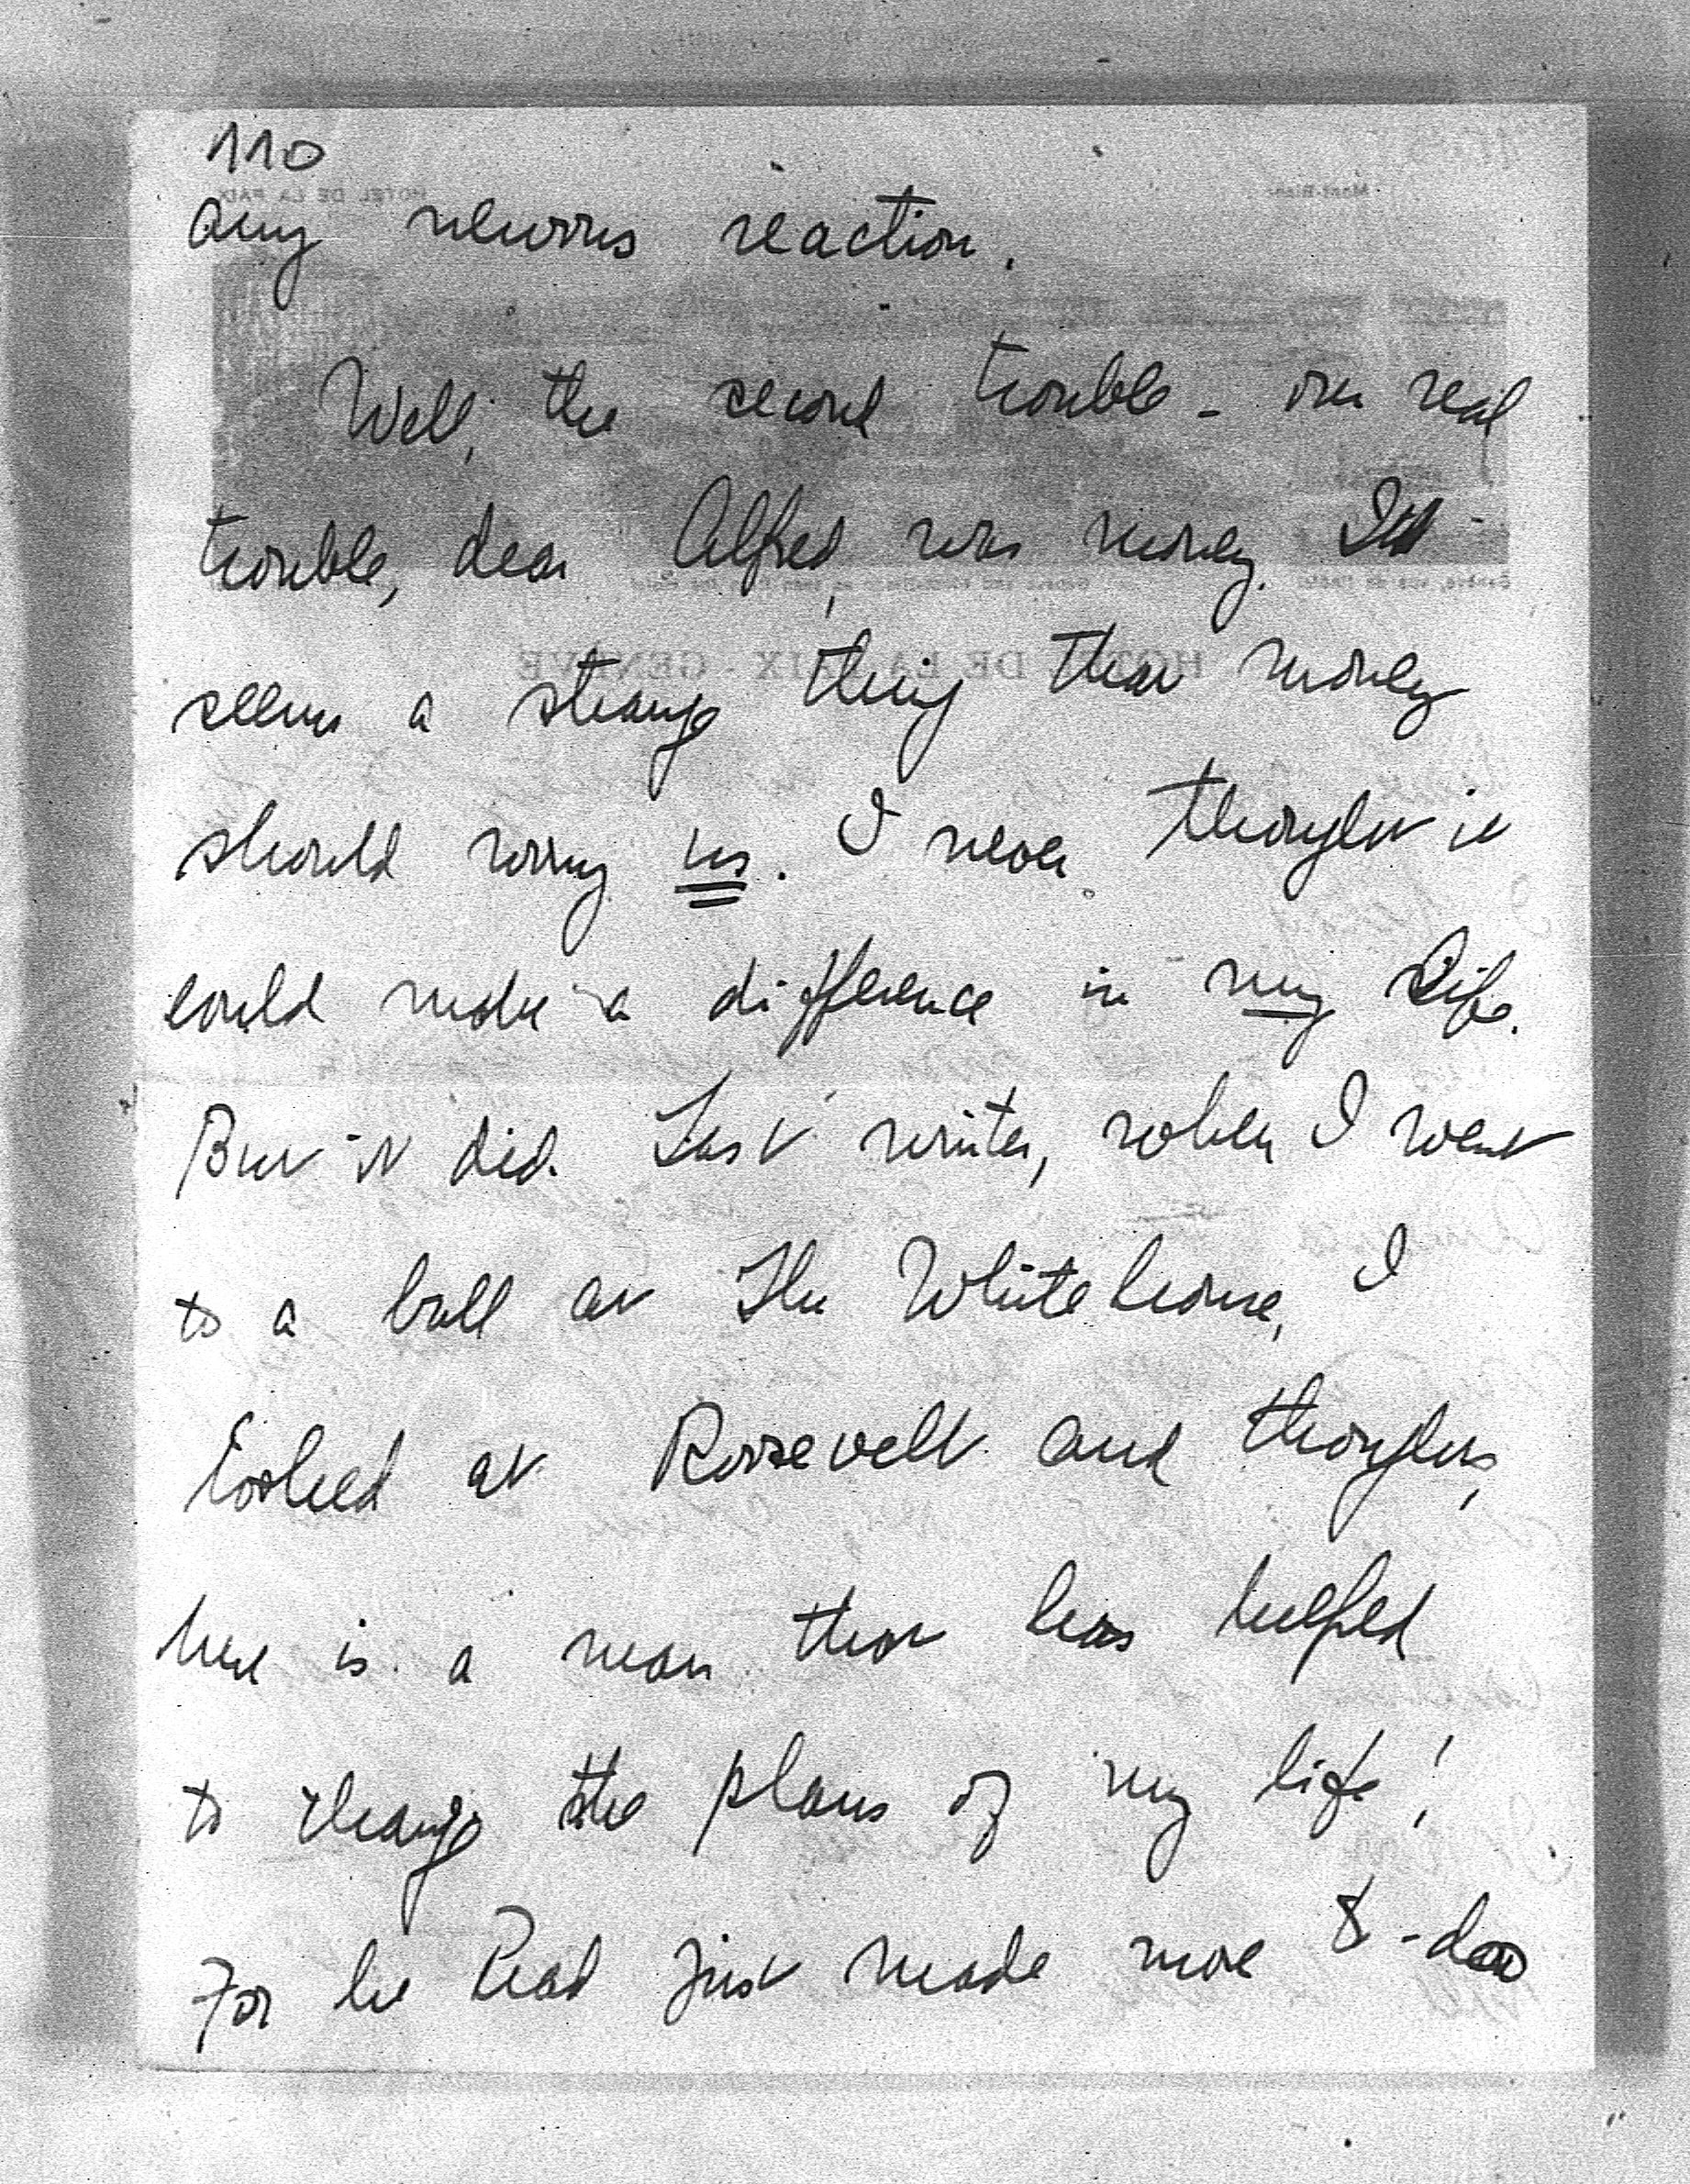 110
any nervous reaction.
Well, the second trouble - our real
trouble, dear Alfred, was money. It
seems a strange thing that money
should worry us. I never thought it
could make a difference in my life.
But it did. Last winter, when I went
to a ball at The White house, I
looked at Roosevelt and thought,
here is a man that has helped
to change the plans of my life!
For he had just made more $-
HOTEL DE LA PAIX
Mont-Blanc
HOTEL DE LA PAIX - GENÈVE